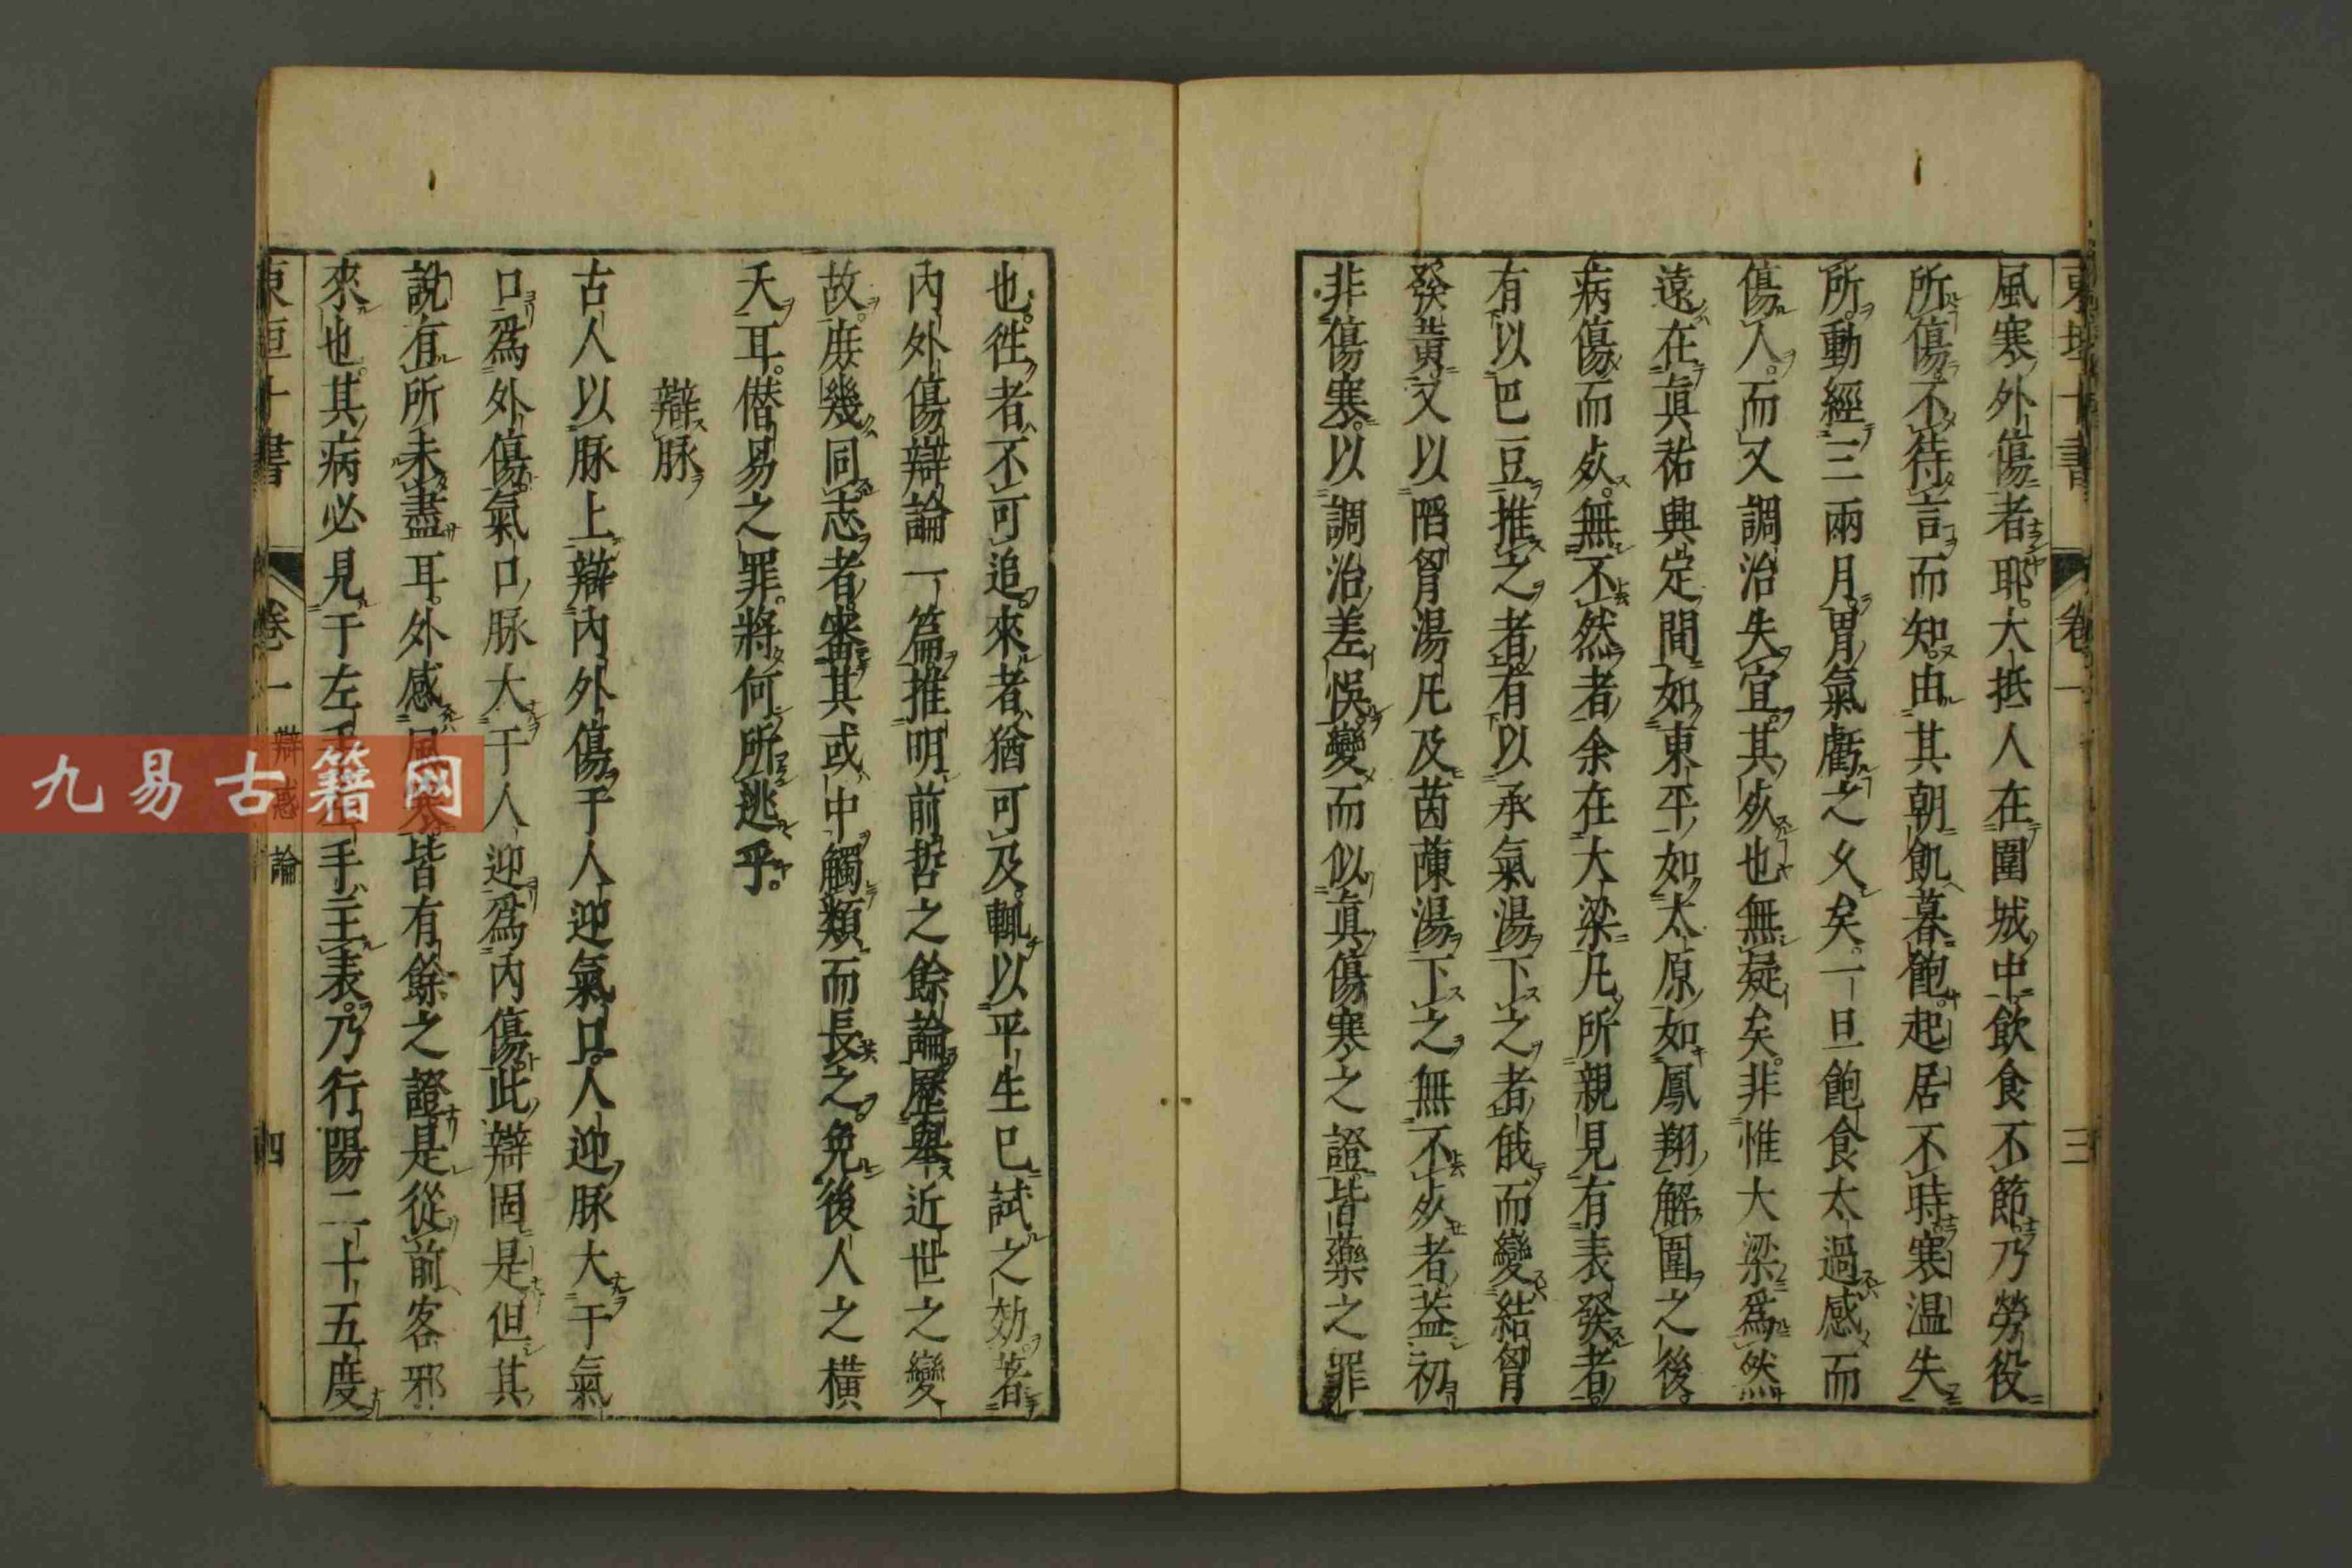 東垣十書 卷一 三
風寒外傷者耶大抵人在圍城中飲食不節乃勞役
所傷不待言而知由其朝飢暮飽起居不時寒温失
所動經三兩月胃氣虧之久矣一旦飽食太過感而
傷人而又調治失宜其死也無疑矣非惟大梁爲然
遠在眞祐興定間如東平如太原如鳳翔解圍之後
病傷而死無不然者余在大梁凡所親見有表發者
有以巴豆推之者有以承氣湯下之者俄而變結胷
發黃又以陷胷湯凡及茵蔯湯下之無不死者葢初
非傷寒以調治差悞變而似眞傷寒之證皆藥之罪
也徃者不可追來者猶可及輒以平生已試之効著
內外傷辯論一篇推明前哲之餘論歷舉近世之變
故庶幾同志者審其或中觸類而長之免後人之橫
夭耳僭易之罪將何所逃乎
辯脉
古人以脉上辯內外傷于人迎氣口人迎脉大于氣
口爲外傷氣口脉大于人迎爲內傷此辯固是但其
說有所未盡耳外感風寒皆有餘之證是從前客邪
來也其病必見于左手左手主表乃行陽二十五度
東垣十書 卷一 辯惑論 四
九易古籍网